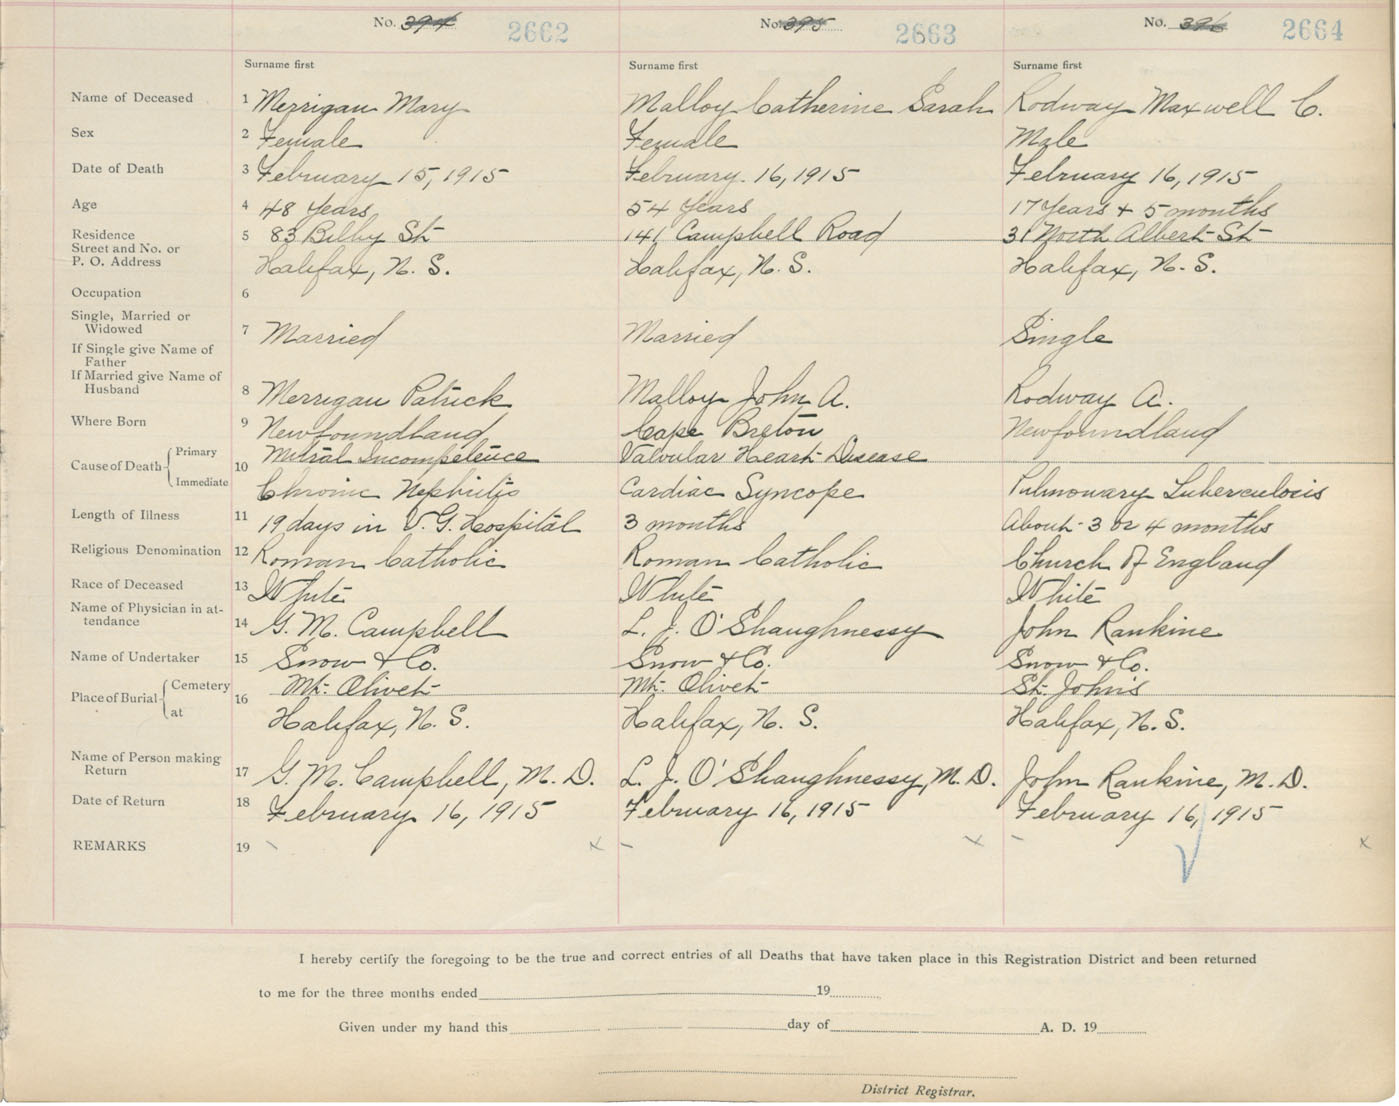 No. 394 2662 No. 395 2663 No. 396 2664
Surname first Surname first Surname first
Name of Deceased 1 Merrigan Mary Malloy Catherine Sarah Rodway Maxwell C.
Sex 2 Female Female Male
Date of Death 3 February 15, 1915 February. 16, 1915 February 16, 1915
Age 4 48 Years 54 Years 17 Years + 5 months
Residence
Street and No. or 5 83 Bilby St 141 Campbell Road 31 North Albert St
P. O. Address Halifax, N. S. Halifax, N. S. Halifax, N. S.
Occupation 6
Single, Married or
Widowed 7 Married Married Single
If Single give Name of
Father
If Married give Name of
Husband 8 Merrigan Patrick Malloy John A. Rodway A.
Where Born 9 Newfoundland Cape Breton Newfoundland
Cause of Death Primary 10 Mitral Incompetence Valvular Heart Disease
Immediate Chronic Nephritis Cardiac Syncope Pulmonary Tuberculosis
Length of Illness 11 19 days in V. G. Hospital 3 months About 3 or 4 months
Religious Denomination 12 Roman Catholic Roman Catholic Church of England
Race of Deceased 13 White White White
Name of Physician in at-
tendance 14 G. M. Campbell L. J. O'Shaughnessy John Rankine
Name of Undertaker 15 Snow & Co. Snow & Co. Snow & Co.
Place of Burial Cemetery 16 Mt. Olivet Mt. Olivet St. John's
at Halifax, N. S. Halifax, N. S. Halifax, N. S.
Name of Person making
Return 17 G. M. Campbell, M. D. L. J. O'Shaughnessy, M. D. John Rankine, M. D.
Date of Return 18 February 16, 1915 February 16, 1915 February 16, 1915
REMARKS 19 x x x
I hereby certify the foregoing to be the true and correct entries of all Deaths that have taken place in this Registration District and been returned
to me for the three months ended 19
Given under my hand this day of A. D. 19
District Registrar.